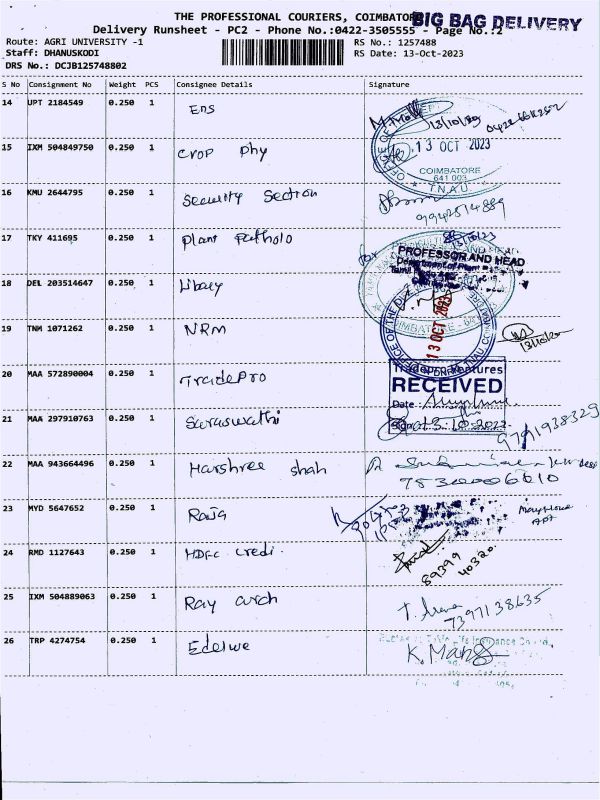 THE PROFESSIONAL COURIERS, COIMBATORE
BIG BAG DELIVERY
Delivery Runsheet - PC2 - Phone No.:0422-3505555 - Page No.:2
Route: AGRI UNIVERSITY -1 RS No.: 1257488
Staff: DHANUSKODI RS Date: 13-Oct-2023
DRS No.: DCJB125748802
S No Consignment No Weight PCS Consignee Details Signature
14 UPT 2184549 0.250 1 Ens
13/10/23
15 IXM 504849750 0.250 1 Crop phy
OFFICE OF
13 OCT 2023
COIMBATORE
641 003
T.N.A.U
16 KMU 2644795 0.250 1 Security Section
9942514889
17 TKY 411695 0.250 1 plant Patholo
PROFESSOR AND HEAD
18 DEL 203514647 0.250 1 Libary
13 OCT 2023
19 TNM 1071262 0.250 1 NRM
20 MAA 572890004 0.250 1 TradePro
RECEIVED
Date
21 MAA 297910763 0.250 1 Saraswathi
13.10.2023
9791938329
22 MAA 943664496 0.250 1 Harshree shah
23 MYD 5647652 0.250 1 Raja
24 RMD 1127643 0.250 1 HDFC credi.
89399
40320
25 IXM 504889063 0.250 1 Ray arch
7397138635
26 TRP 4274754 0.250 1 Edelwe
K. Mang